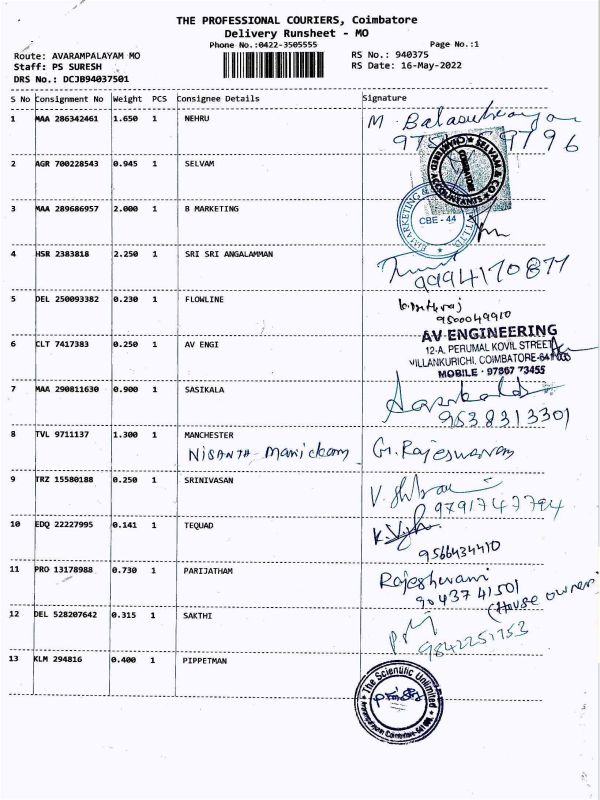 THE PROFESSIONAL COURIERS, Coimbatore
Delivery Runsheet - MO
Phone No.:0422-3505555 Page No.:1
Route: AVARAMPALAYAM MO RS No.: 940375
Staff: PS SURESH RS Date: 16-May-2022
DRS No.: DCJB94037501
S No Consignment No Weight PCS Consignee Details Signature
1 MAA 286342461 1.650 1 NEHRU
2 AGR 700228543 0.945 1 SELVAM
SELVAM & CO
CHARTERED ACCOUNTANTS
COIMBATORE
3 MAA 289686957 2.000 1 B MARKETING
CBE - 44
4 HSR 2383818 2.250 1 SRI SRI ANGALAMMAN
9994170877
5 DEL 250093382 0.230 1 FLOWLINE
9500049910
6 CLT 7417383 0.250 1 AV ENGI
AV ENGINEERING
12-A, PERUMAL KOVIL STREET,
VILLANKURICHI, COIMBATORE-641
MOBILE - 97867 73455
7 MAA 290811630 0.900 1 SASIKALA
Sasikala
9538313301
8 TVL 9711137 1.300 1 MANCHESTER
NISANTH Manickam G. Rajeswaram
9 TRZ 15580188 0.250 1 SRINIVASAN
9791747794
10 EDQ 22227995 0.141 1 TEQUAD
9566434410
11 PRO 13178988 0.730 1 PARIJATHAM
Rajeshwari
9043741501
(House owner)
12 DEL 528207642 0.315 1 SAKTHI
9842251153
13 KLM 294816 0.400 1 PIPPETMAN
The Scientific Unlimited